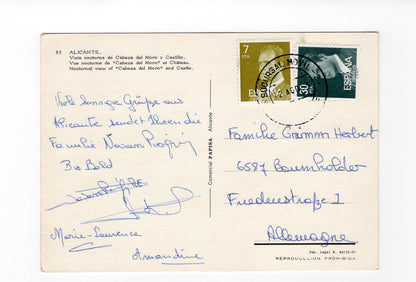 53 ALICANTE.
Vista nocturna de Cabeza del Moro y Castillo.
Vue nocturne de "Cabeza del Moro" et Château.
Nocturnal view of "Cabeza del Moro" and Castle.
Viele sonnige Grüsse aus
Alicante sendet
Familie
Bis Bald
Marie-Laurence
Amandine
Comercial PAPISA Alicante
7
PTA
ESPAÑA
30
ESPAÑA
SUCURSAL
Familie Grimm Herbert
6587 Baumholder
Friedenstraße 1
Allemagne
REPRODUCCION PROHIBIDA